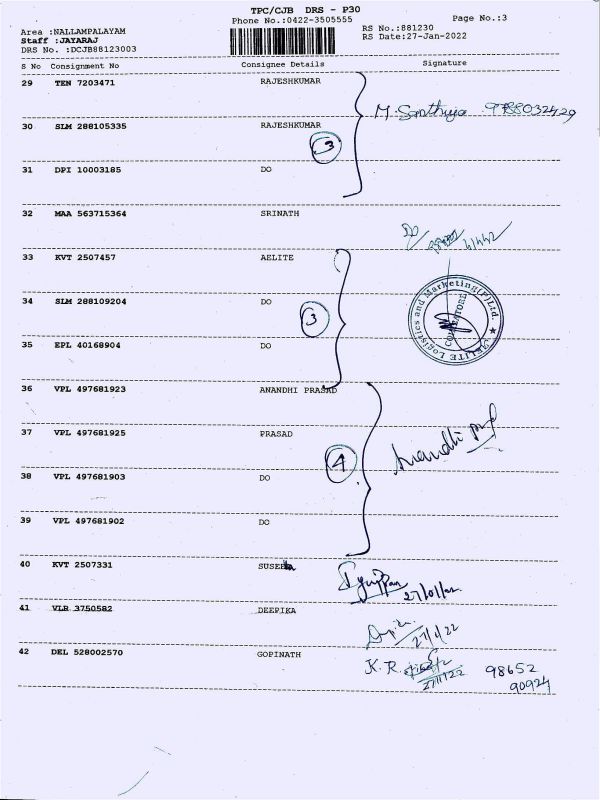 TPC/CJB DRS - P30
Phone No.:0422-3505555
Page No.:3
Area :NALLAMPALAYAM
Staff :JAYARAJ
DRS No. :DCJB88123003
RS No.:881230
RS Date:27-Jan-2022
S No Consignment No Consignee Details Signature
29 TEN 7203471 RAJESHKUMAR
M. Santhiya 9788032429
30 SLM 288105335 RAJESHKUMAR
3
31 DPI 10003185 DO
32 MAA 563715364 SRINATH
33 KVT 2507457 AELITE
34 SLM 288109204 DO
3
AELITE Logistics and Marketing(P)Ltd.
COIMBATORE
35 EPL 40168904 DO
36 VPL 497681923 ANANDHI PRASAD
37 VPL 497681925 PRASAD
Anandhi
4
38 VPL 497681903 DO
39 VPL 497681902 DO
40 KVT 2507331 SUSEELA
27/01/22
41 VLR 3750582 DEEPIKA
27/1/22
42 DEL 528002570 GOPINATH
K. R.
27/1/22
98652
90924